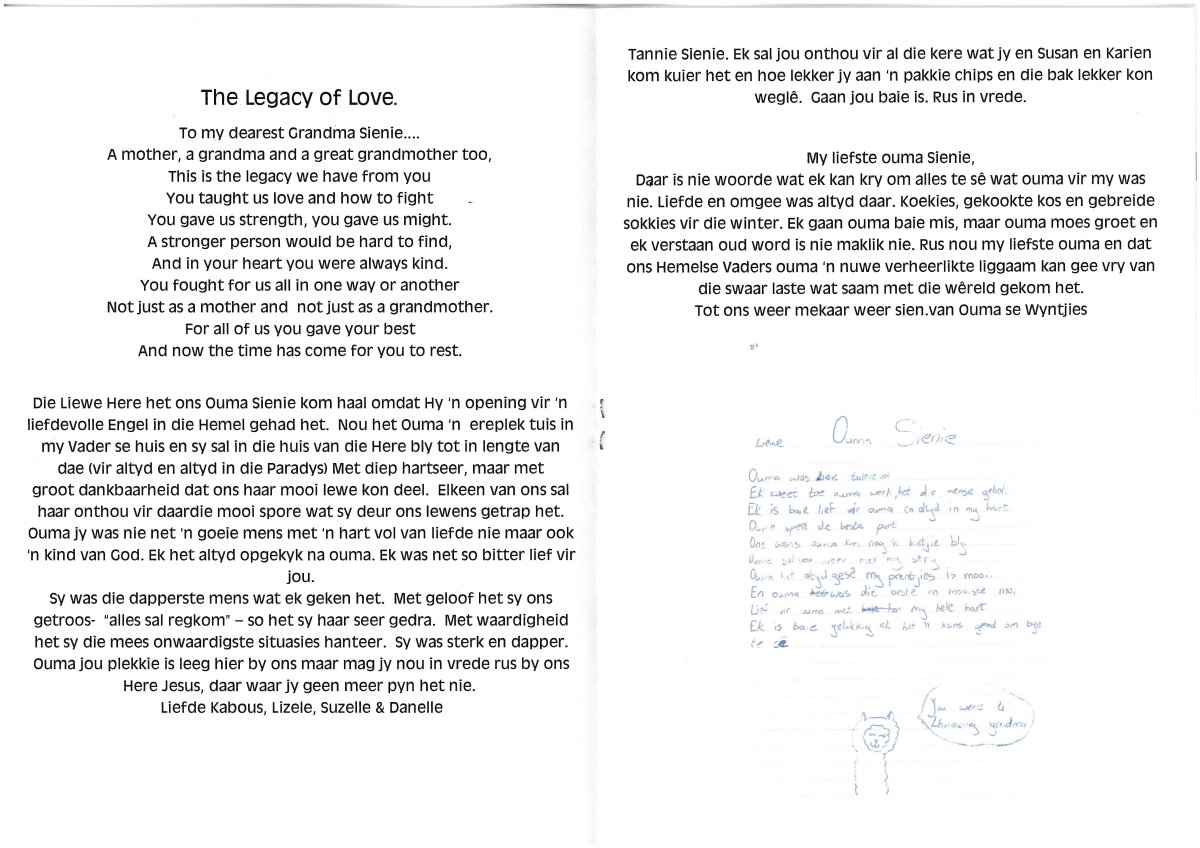 The Legacy of Love.
To my dearest Grandma Sienie....
A mother, a grandma and a great grandmother too,
This is the legacy we have from you
You taught us love and how to fight
You gave us strength, you gave us might.
A stronger person would be hard to find,
And in your heart you were always kind.
You fought for us all in one way or another
Not just as a mother and  not just as a grandmother.
For all of us you gave your best
And now the time has come for you to rest.
Die Liewe Here het ons Ouma Sienie kom haal omdat Hy 'n opening vir 'n
liefdevolle Engel in die Hemel gehad het.  Nou het Ouma 'n  ereplek tuis in
my Vader se huis en sy sal in die huis van die Here bly tot in lengte van
dae (vir altyd en altyd in die Paradys) Met diep hartseer, maar met
groot dankbaarheid dat ons haar mooi lewe kon deel.  Elkeen van ons sal
haar onthou vir daardie mooi spore wat sy deur ons lewens getrap het.
Ouma jy was nie net 'n goeie mens met 'n hart vol van liefde nie maar ook
'n kind van God. Ek het altyd opgekyk na ouma. Ek was net so bitter lief vir
jou.
Sy was die dapperste mens wat ek geken het.  Met geloof het sy ons
getroos-  "alles sal regkom" – so het sy haar seer gedra.  Met waardigheid
het sy die mees onwaardigste situasies hanteer.  Sy was sterk en dapper.
Ouma jou plekkie is leeg hier by ons maar mag jy nou in vrede rus by ons
Here Jesus, daar waar jy geen meer pyn het nie.
Liefde Kabous, Lizele, Suzelle & Danelle
Tannie Sienie. Ek sal jou onthou vir al die kere wat jy en Susan en Karien
kom kuier het en hoe lekker jy aan 'n pakkie chips en die bak lekker kon
weglê.  Gaan jou baie is. Rus in vrede.
My liefste ouma Sienie,
Daar is nie woorde wat ek kan kry om alles te sê wat ouma vir my was
nie. Liefde en omgee was altyd daar. Koekies, gekookte kos en gebreide
sokkies vir die winter. Ek gaan ouma baie mis, maar ouma moes groet en
ek verstaan oud word is nie maklik nie. Rus nou my liefste ouma en dat
ons Hemelse Vaders ouma 'n nuwe verheerlikte liggaam kan gee vry van
die swaar laste wat saam met die wêreld gekom het.
Tot ons weer mekaar weer sien.van Ouma se Wyntjies
Liewe Ouma Sienie
Ouma was
Ek weet toe ouma werk, het die mense
Ek is baie lief vir ouma altyd in my hart
de beste part
Ons wens ouma kon nog 'n bietjie bly.
Ouma sal nou meer my
Ouma het altyd gesê my prentjies is mooi.
En ouma was die beste en mooiste
ouma met my hele hart
Ek is baie gelukkig ek het 'n kans gehad om bye
te sê
You were
grandma